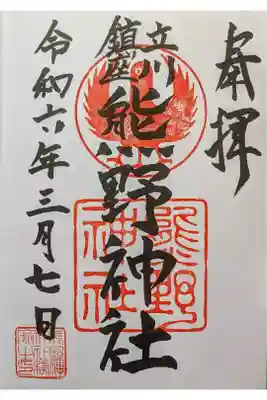 奉拝
立川
鎮座
熊野神社
熊野
神社
令和六年三月七日